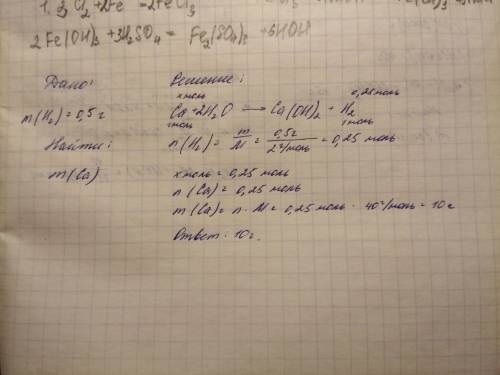 1. 3Cl₂ + 2Fe = 2FeCl₃
2Fe(OH)₃ + 3H₂SO₄ = Fe₂(SO₄)₃ + 6HOH
Дано:
m(H₂) = 0,5 г
Найти:
m(Ca)
Решение:
x моль 0,25 моль
Ca + 2H₂O → Ca(OH)₂ + H₂
1моль 1моль
n(H₂) = m/M = 0,5г / 2г/моль = 0,25 моль
x моль = 0,25 моль
n(Ca) = 0,25 моль
m(Ca) = n · M = 0,25 моль · 40 г/моль = 10 г
Ответ: 10г.